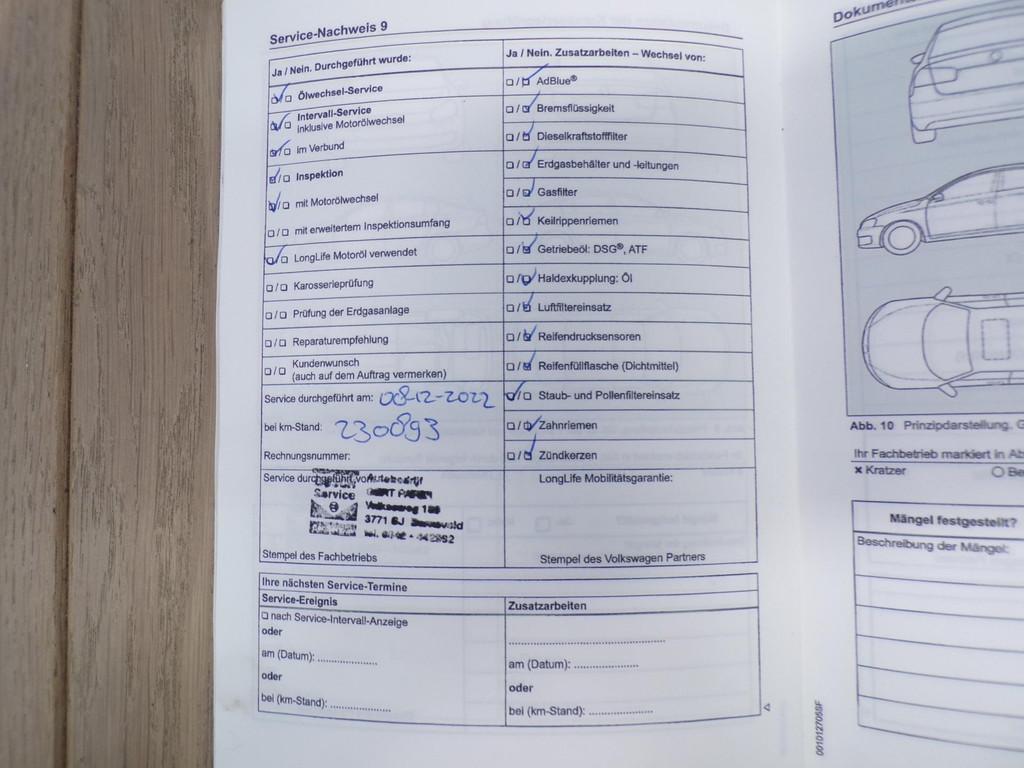 Service-Nachweis 9
Ja / Nein. Durchgeführt wurde:
Ölwechsel-Service
Intervall-Service
inklusive Motorölwechsel
im Verbund
Inspektion
mit Motorölwechsel
mit erweitertem Inspektionsumfang
LongLife Motoröl verwendet
Karosserieprüfung
Prüfung der Erdgasanlage
Reparaturempfehlung
Kundenwunsch
(auch auf dem Auftrag vermerken)
Service durchgeführt am: 08-12-2022
bei km-Stand: 230893
Rechnungsnummer:
Service durchgeführt von:
Autobedrijf
Service
3771
Stempel des Fachbetriebs
Ja / Nein. Zusatzarbeiten – Wechsel von:
AdBlue®
Bremsflüssigkeit
Dieselkraftstofffilter
Erdgasbehälter und -leitungen
Gasfilter
Keilrippenriemen
Getriebeöl: DSG®, ATF
Haldexkupplung: Öl
Luftfiltereinsatz
Reifendrucksensoren
Reifenfüllflasche (Dichtmittel)
Staub- und Pollenfiltereinsatz
Zahnriemen
Zündkerzen
LongLife Mobilitätsgarantie:
Stempel des Volkswagen Partners
Ihre nächsten Service-Termine
Service-Ereignis
nach Service-Intervall-Anzeige
oder
am (Datum): ....................
oder
bei (km-Stand): ....................
Zusatzarbeiten
..................................................
am (Datum): ....................
oder
bei (km-Stand): ....................
001012705SF
Abb. 10 Prinzipdarstellung.
Ihr Fachbetrieb markiert in
x Kratzer
Mängel festgestellt?
Beschreibung der Mängel: